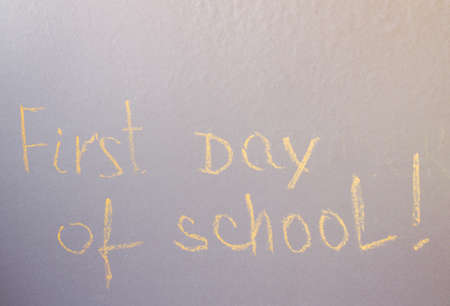 First DAY
of school!